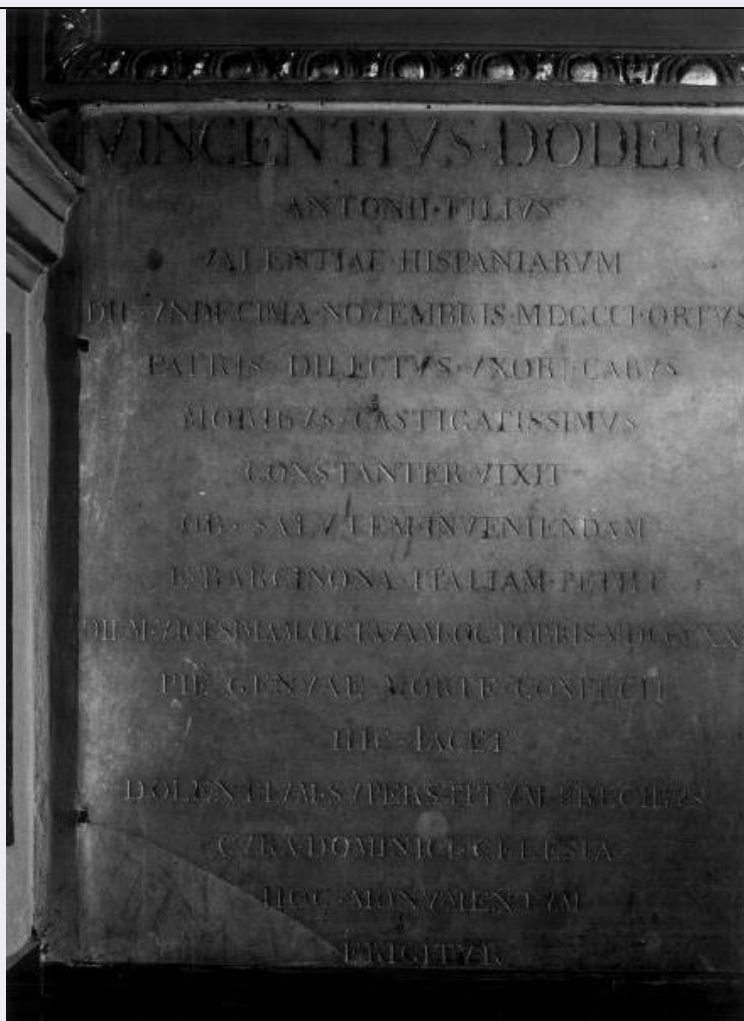 VINCENTIVS·DODERO
ANTONII·FILIVS
VALENTIAE HISPANIARVM
DIE VNDECIMA·NOVEMBRIS·MDCCCI·ORTVS
PATRIS DILECTVS·VXORI CARVS
MORIBVS CASTIGATISSIMVS
CONSTANTER·VIXIT
OB·SALVTEM·INVENIENDAM
E BARCINONA ITALIAM·PETIIT
DIEM·VIGESIMAM·OCTAVAM·OCTOBRIS
PIE GENVAE MORTE CONFECIT
HIC·IACET
DOLENTIVM·SVPERSTITVM·PRECIBVS
CVRA DOMINICI CELESIA
HOC·MONVMENTVM
ERIGITVR